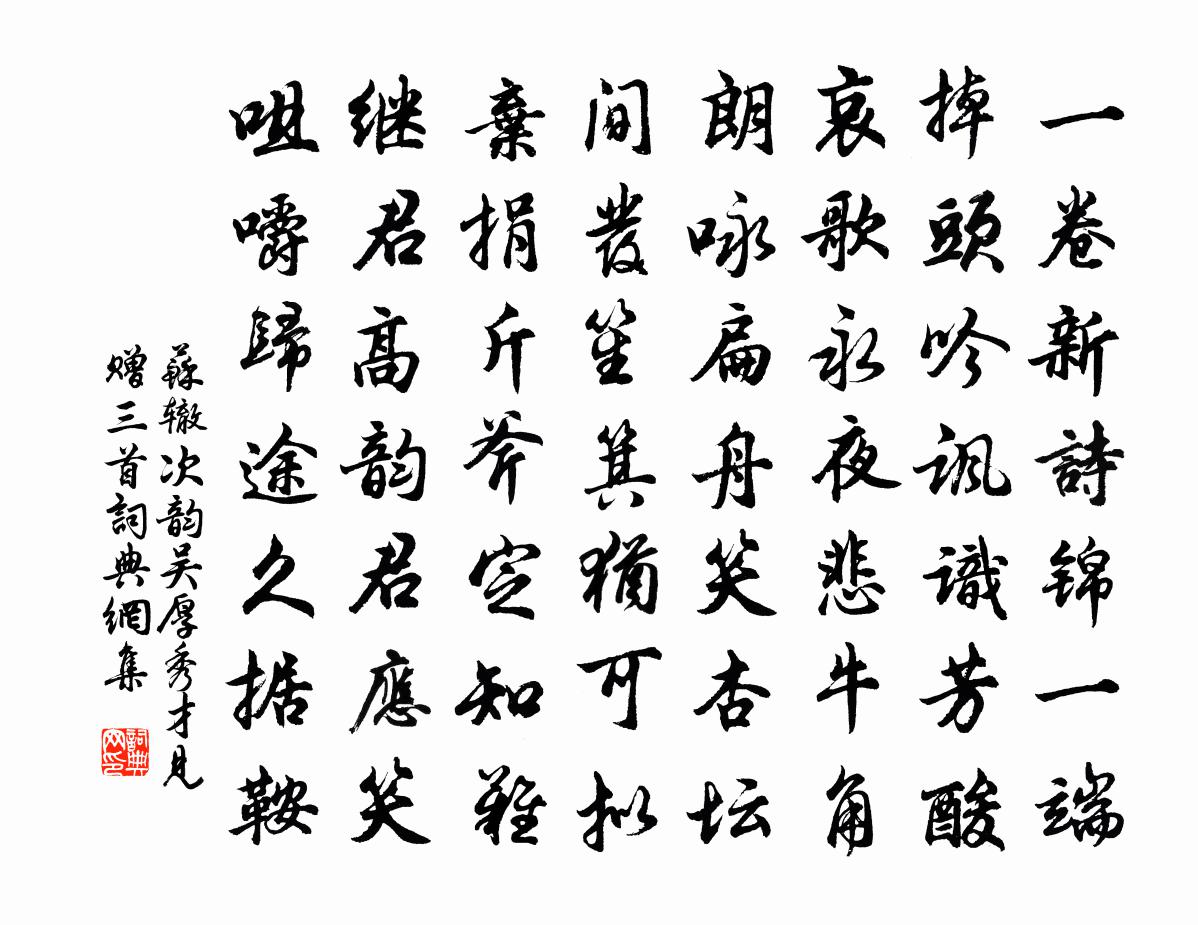 一卷新詩锦一端
掉頭吟讽識芳酸
哀歌永夜悲牛角
朗咏扁舟笑杏坛
间發笙箕猶可拟
棄捐斤斧定知難
继君高韵君應笑
咀嚼歸途久据鞍
蘇辙次韵吴厚秀才見
赠三首詞典網集
詞典
网印